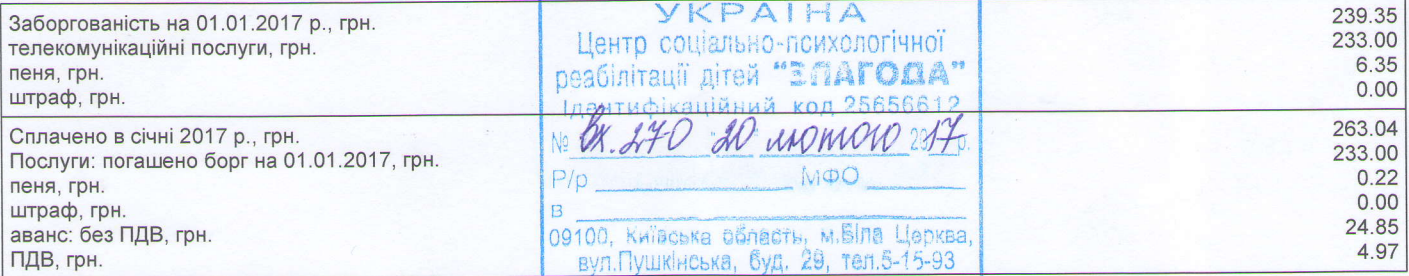 Заборгованість на 01.01.2017 р., грн. 239.35
телекомунікаційні послуги, грн. 233.00
пеня, грн. 6.35
штраф, грн. 0.00
Сплачено в січні 2017 р., грн. 263.04
Послуги: погашено борг на 01.01.2017, грн. 233.00
пеня, грн. 0.22
штраф, грн. 0.00
аванс: без ПДВ, грн. 24.85
ПДВ, грн. 4.97
УКРАЇНА
Центр соціально-психологічної
реабілітації дітей "ЗЛАГОДА"
Ідентифікаційний код 25656612
№ Вх. 270 "20" лютого 2017р.
Р/р МФО
в
09100, Київська область, м.Біла Церква,
вул.Пушкінська, буд. 29, тел.5-15-93